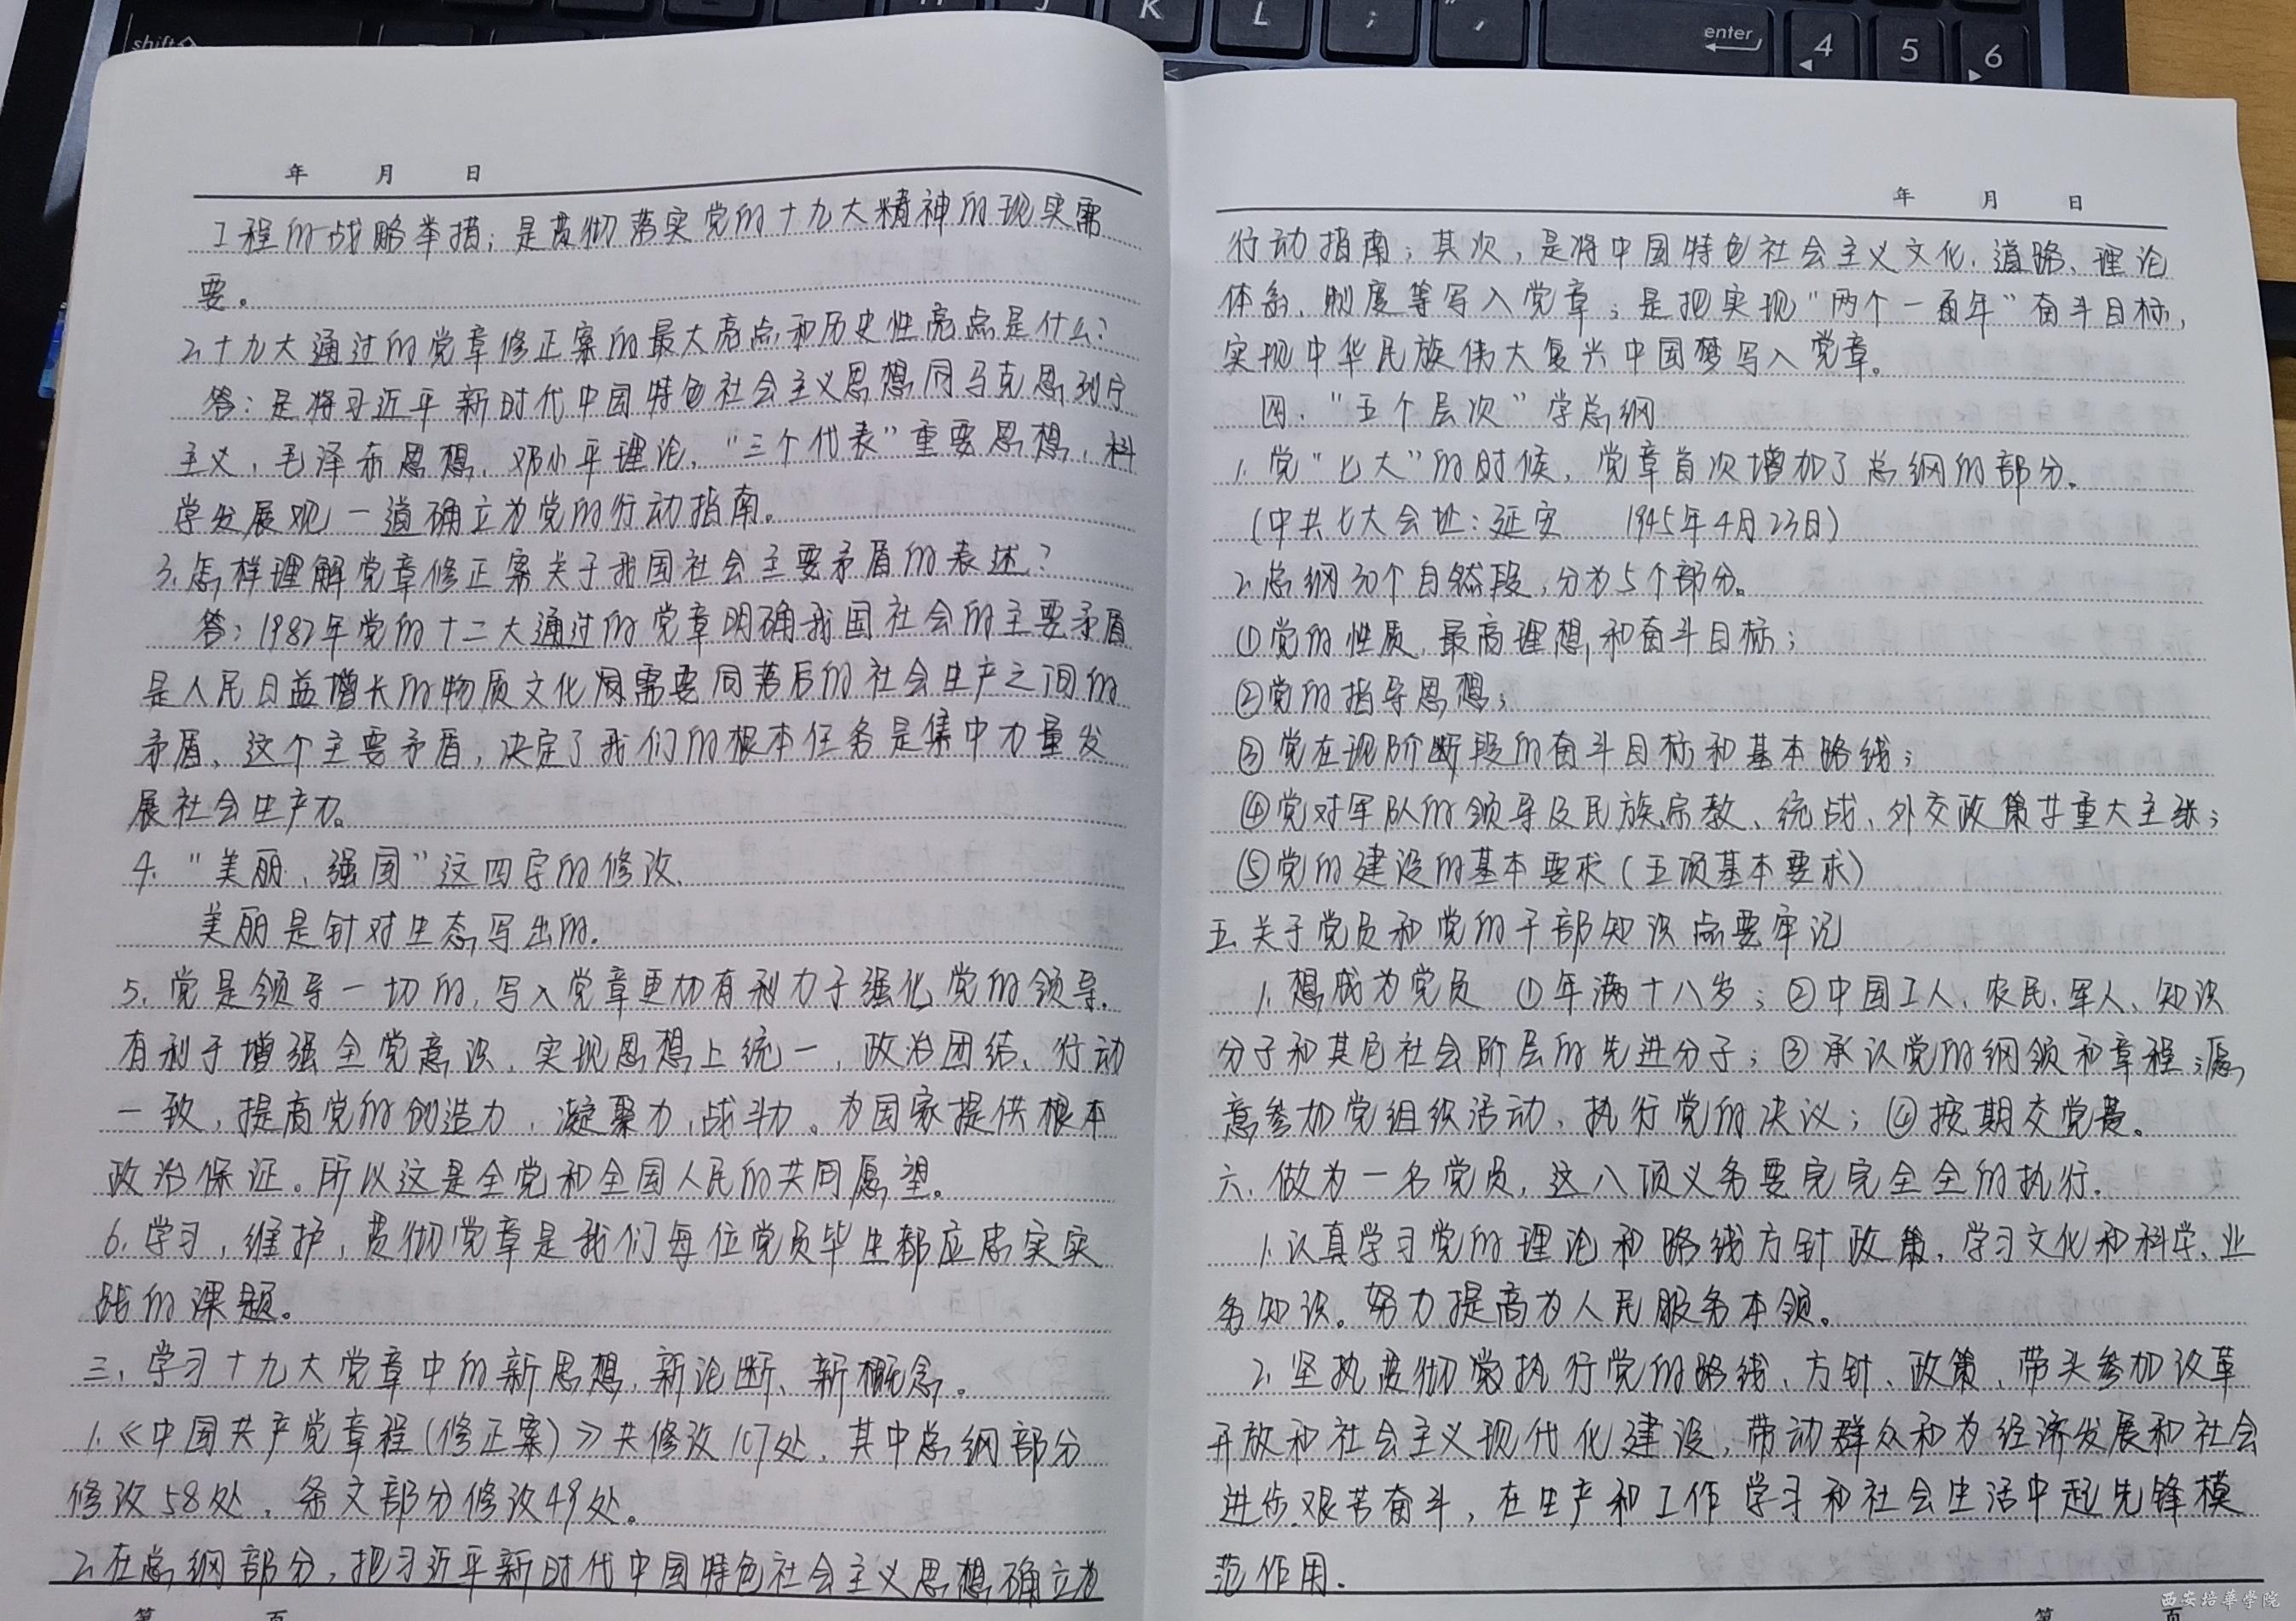 shift
K
L
;
enter
4
5
6
年 月 日
工程的战略举措;是贯彻落实党的十九大精神的现实需
要。
2.十九大通过的党章修正案的最大亮点和历史性亮点是什么?
答:是将习近平新时代中国特色社会主义思想同马克思列宁
主义、毛泽东思想、邓小平理论、“三个代表”重要思想、科
学发展观一道确立为党的行动指南。
3.怎样理解党章修正案关于我国社会主要矛盾的表述?
答:1982年党的十二大通过的党章明确我国社会的主要矛盾
是人民日益增长的物质文化需要同落后的社会生产之间的
矛盾、这个主要矛盾,决定了我们的根本任务是集中力量发
展社会生产力。
4.“美丽、强国”这四字的修改.
美丽是针对生态写出的.
5.党是领导一切的,写入党章更加有利力于强化党的领导.
有利于增强全党意识,实现思想上统一,政治团结、行动
一致,提高党的创造力,凝聚力,战斗力。为国家提供根本
政治保证。所以这是全党和全国人民的共同愿望。
6.学习,维护,贯彻党章是我们每位党员毕生都应忠实实
践的课题。
三、学习十九大党章中的新思想、新论断、新概念。
1.《中国共产党章程(修正案)》共修改107处,其中总纲部分
修改58处,条文部分修改49处。
2.在总纲部分,把习近平新时代中国特色社会主义思想确立为
第 页
年 月 日
行动指南;其次,是将中国特色社会主义文化、道路、理论
体系、制度等写入党章;是把实现“两个一百年”奋斗目标,
实现中华民族伟大复兴中国梦写入党章。
四、“五个层次”学总纲
1.党“七大”的时候,党章首次增加了总纲的部分.
(中共七大会址:延安 1945年4月23日)
2.总纲30个自然段,分为5个部分。
①党的性质,最高理想,和奋斗目标;
②党的指导思想;
③党在现阶段的奋斗目标和基本路线;
④党对军队的领导及民族、宗教、统战、外交政策等重大主张;
⑤党的建设的基本要求(五项基本要求)
五.关于党员和党的干部知识点要牢记
1.想成为党员 ①年满十八岁;②中国工人、农民、军人、知识
分子和其它社会阶层的先进分子;③承认党的纲领和章程;愿
意参加党组织活动,执行党的决议;④按期交党费。
六.做为一名党员,这八项义务要完完全全的执行.
1.认真学习党的理论和路线方针政策,学习文化和科学、业
务知识。努力提高为人民服务本领。
2.坚执贯彻党执行党的路线、方针、政策、带头参加改革
开放和社会主义现代化建设,带动群众和为经济发展和社会
进步艰苦奋斗,在生产和工作学习和社会生活中起先锋模
范作用.
第 页
西安培華学院